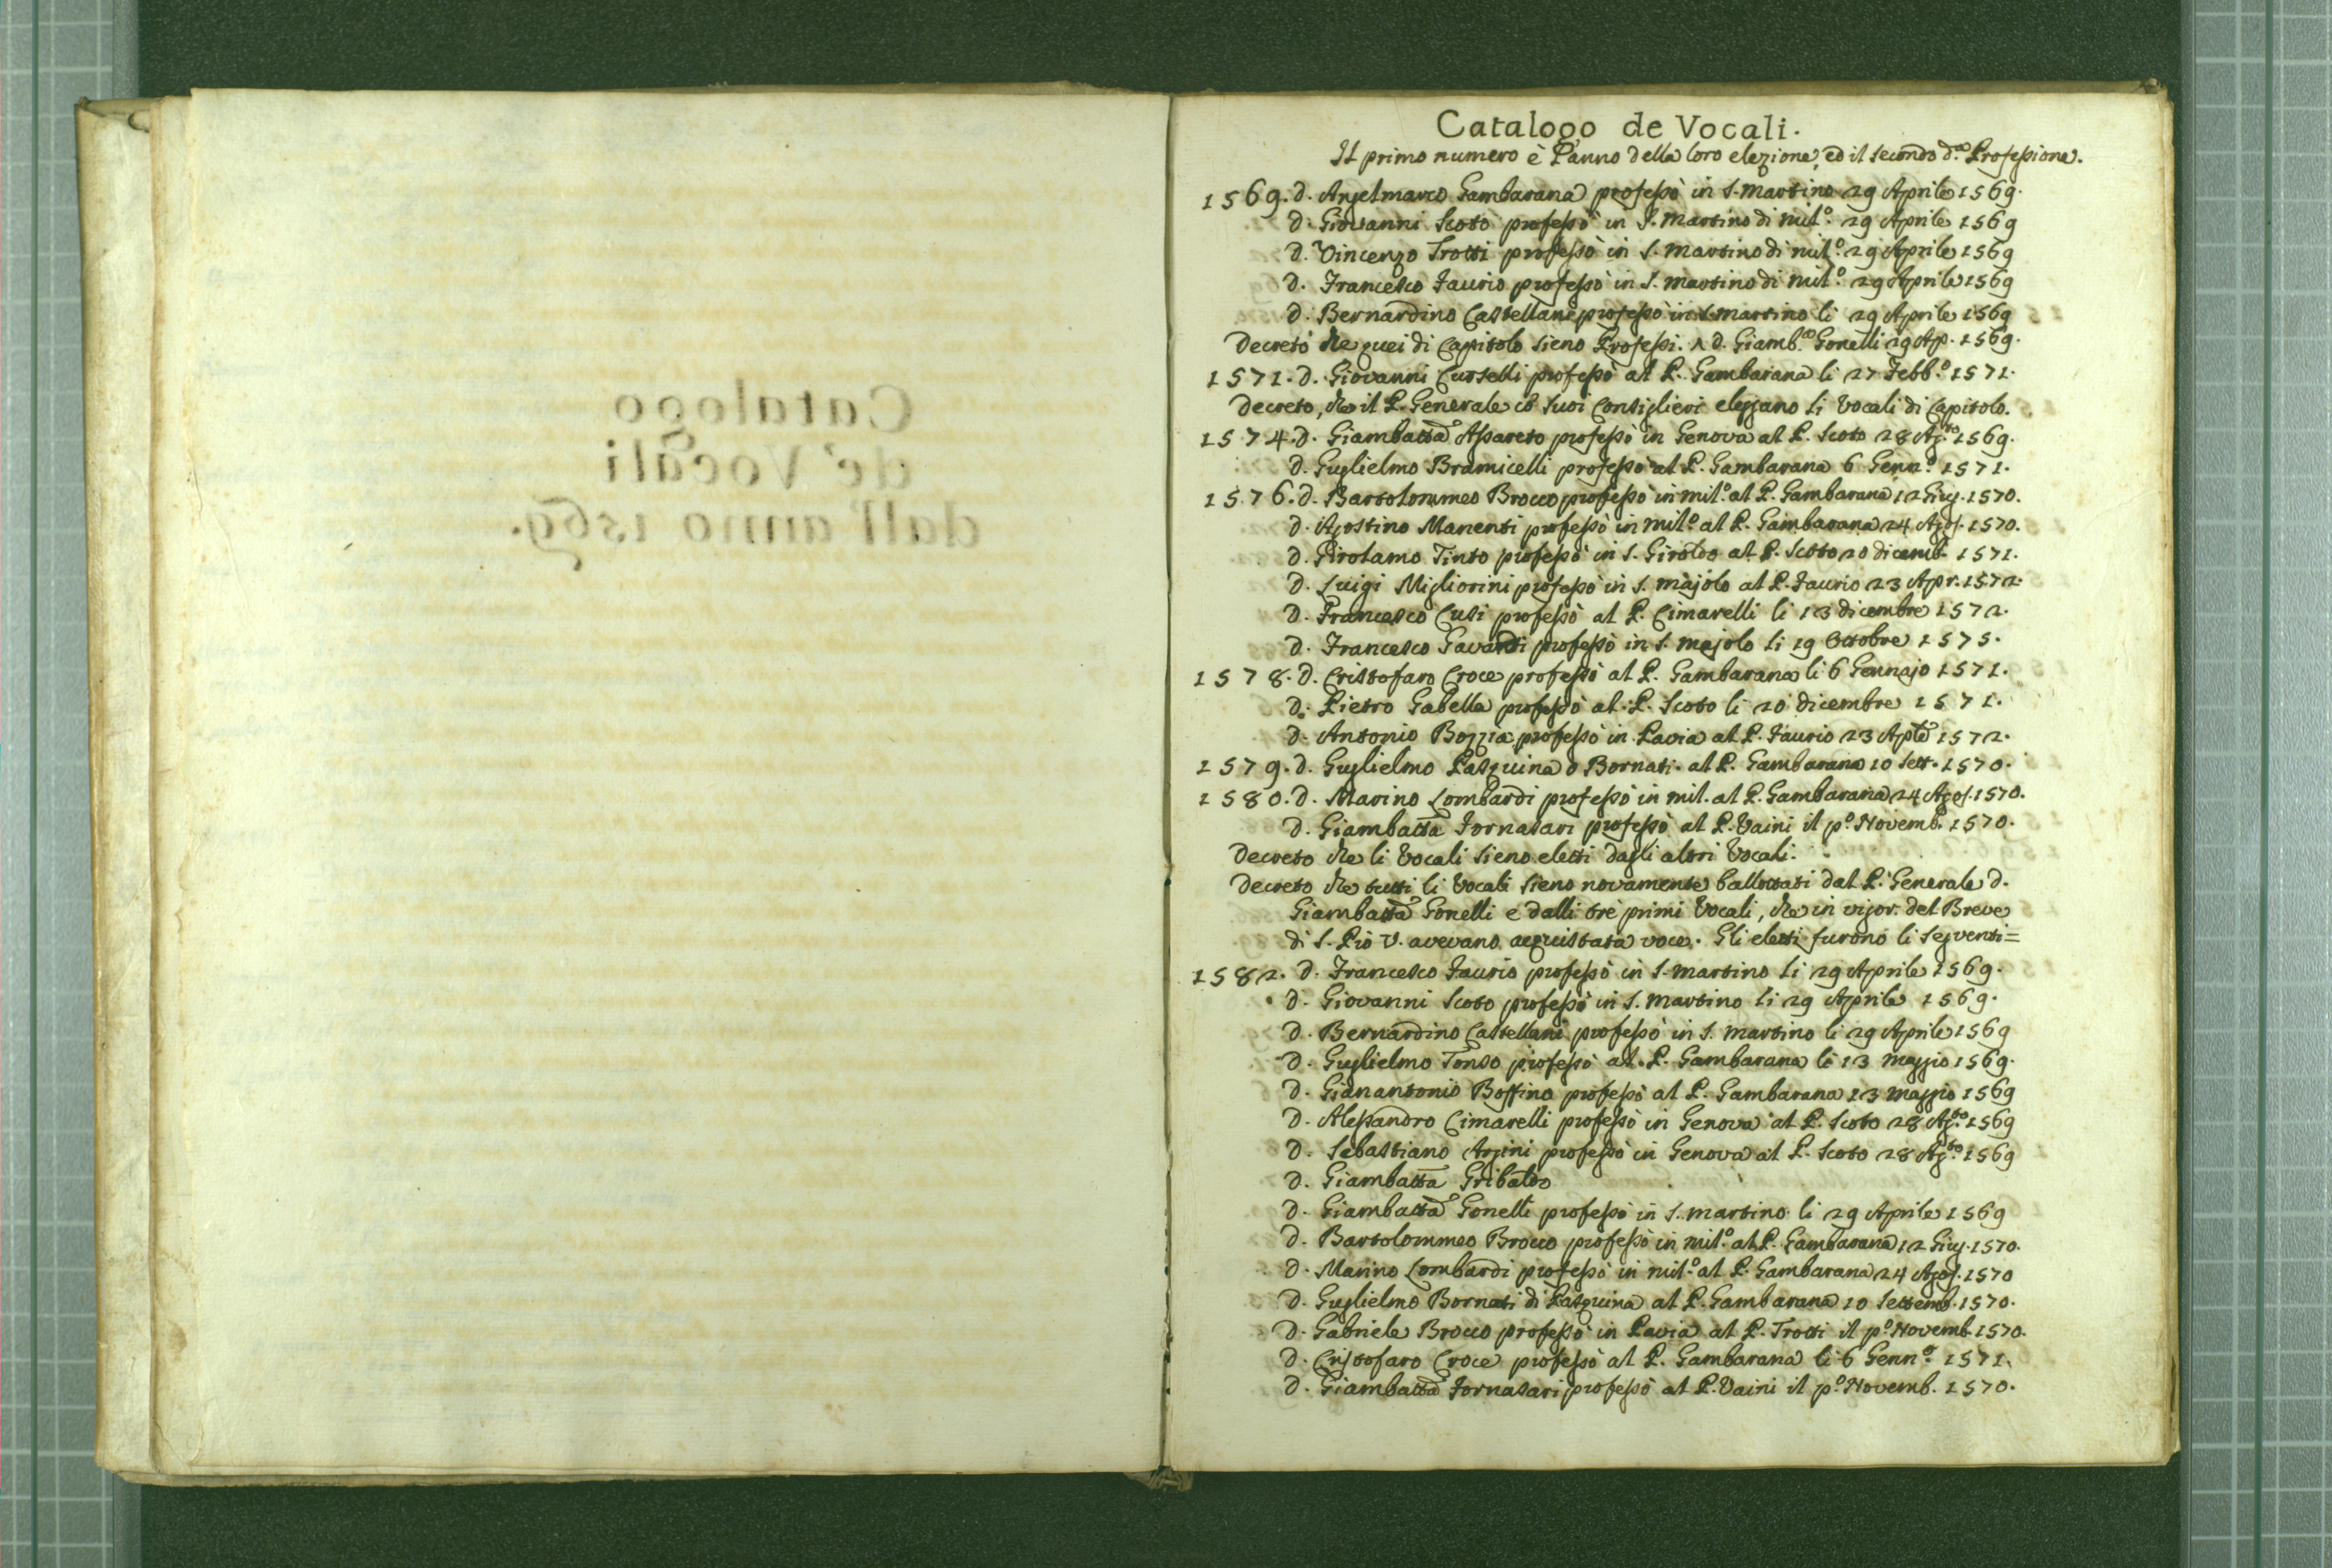 Catalogo
de' Vocali
dall' anno 1569.
Catalogo de Vocali.
Il primo numero è l'anno della loro elezione, ed il secondo d.ª Professione.
1569. d. Angelmarco Gambarana professò in S. Martino 29 Aprile 1569.
d. Giovanni Scoto professò in S. Martino di Mil.º 29 Aprile 1569
d. Vincenzo Trotti professò in S. Martino di Mil.º 29 Aprile 1569
d. Francesco Faurio professò in S. Martino di Mil.º 29 Aprile 1569
d. Bernardino Castellani professò in S. Martino li 29 Aprile 1569
Decreto che quei di Capitolo sieno Professi. ^ d. Giamb.ª Gonelli 29 Ap. 1569.
1571. d. Giovanni Curselli professò al P. Gambarana li 27 Febb.º 1571.
Decreto, che il P. Generale co' suoi Consiglieri eleggano li Vocali di Capitolo.
1574. d. Giambatta Assareto professò in Genova al P. Scoto 28 Ag.to 1569.
d. Guglielmo Bramicelli professò al P. Gambarana 6 Genn.º 1571.
1576. d. Bartolommeo Brocco professò in Mil.º al P. Gambarana 12 Giug. 1570.
d. Agostino Manenti professò in Mil.º al P. Gambarana 24 Agos. 1570.
d. Girolamo Tinto professò in S. Giroldo al P. Scoto 20 dicemb. 1571.
d. Luigi Migliorini professò in S. Majolo al P. Faurio 23 Apr. 1572.
d. Francesco Cusi professò al P. Cimarelli li 13 dicembre 1572.
d. Francesco Gavardi professò in S. Majolo li 19 Ottobre 1575.
1578. d. Cristofaro Croce professò al P. Gambarana li 6 Gennajo 1571.
d. Pietro Gabella professò al P. Scoto li 20 dicembre 1571.
d. Antonio Bozzia professò in Pavia al P. Faurio 23 1572.
1579. d. Guglielmo Pasquina o Bornati. al P. Gambarana 10 Sett. 1570.
1580. d. Marino Lombardi professò in Mil. al P. Gambarana 24 Agos. 1570.
d. Giambatta Fornasari professò al P. Vaini il p.º Novemb. 1570.
Decreto che li Vocali sieno eletti dagli altri Vocali.
Decreto che tutti li Vocali sieno novamente ballottati dal P. Generale d.
Giambatta Gonelli e dalli tre primi Vocali, che in vigor. del Breve
di S. Pio V. avevano acquistata voce. Gli eletti furono li segventi=
1582. d. Francesco Faurio professò in S. Martino li 29 Aprile 1569.
d. Giovanni Scoto professò in S. Martino li 29 Aprile 1569.
d. Bernardino Castellani professò in S. Martino li 29 Aprile 1569
d. Guglielmo Tonso professò al P. Gambarana li 13 Maggio 1569.
d. Gianantonio Boffino professò al P. Gambarana 13 Maggio 1569
d. Alessandro Cimarelli professò in Genova al P. Scoto 28 Ag.to 1569
d. Sebastiano Argini professò in Genova al P. Scoto 28 Ag.to 1569
d. Giambatta Gribaldo
d. Giambatta Gonelli professò in S. Martino li 29 Aprile 1569
d. Bartolommeo Brocco professò in Mil.º al P. Gambarana 12 Giug. 1570.
d. Marino Lombardi professò in Mil.º al P. Gambarana 24 Agos. 1570
d. Guglielmo Bornati di Pasquina al P. Gambarana 10 Settemb. 1570.
d. Gabriele Brocco professò in Pavia al P. Trotti il p.º Novemb. 1570.
d. Cristofaro Croce professò al P. Gambarana li 6 Genn.º 1571.
d. Giambatta Fornasari professò al P. Vaini il p.º Novemb. 1570.